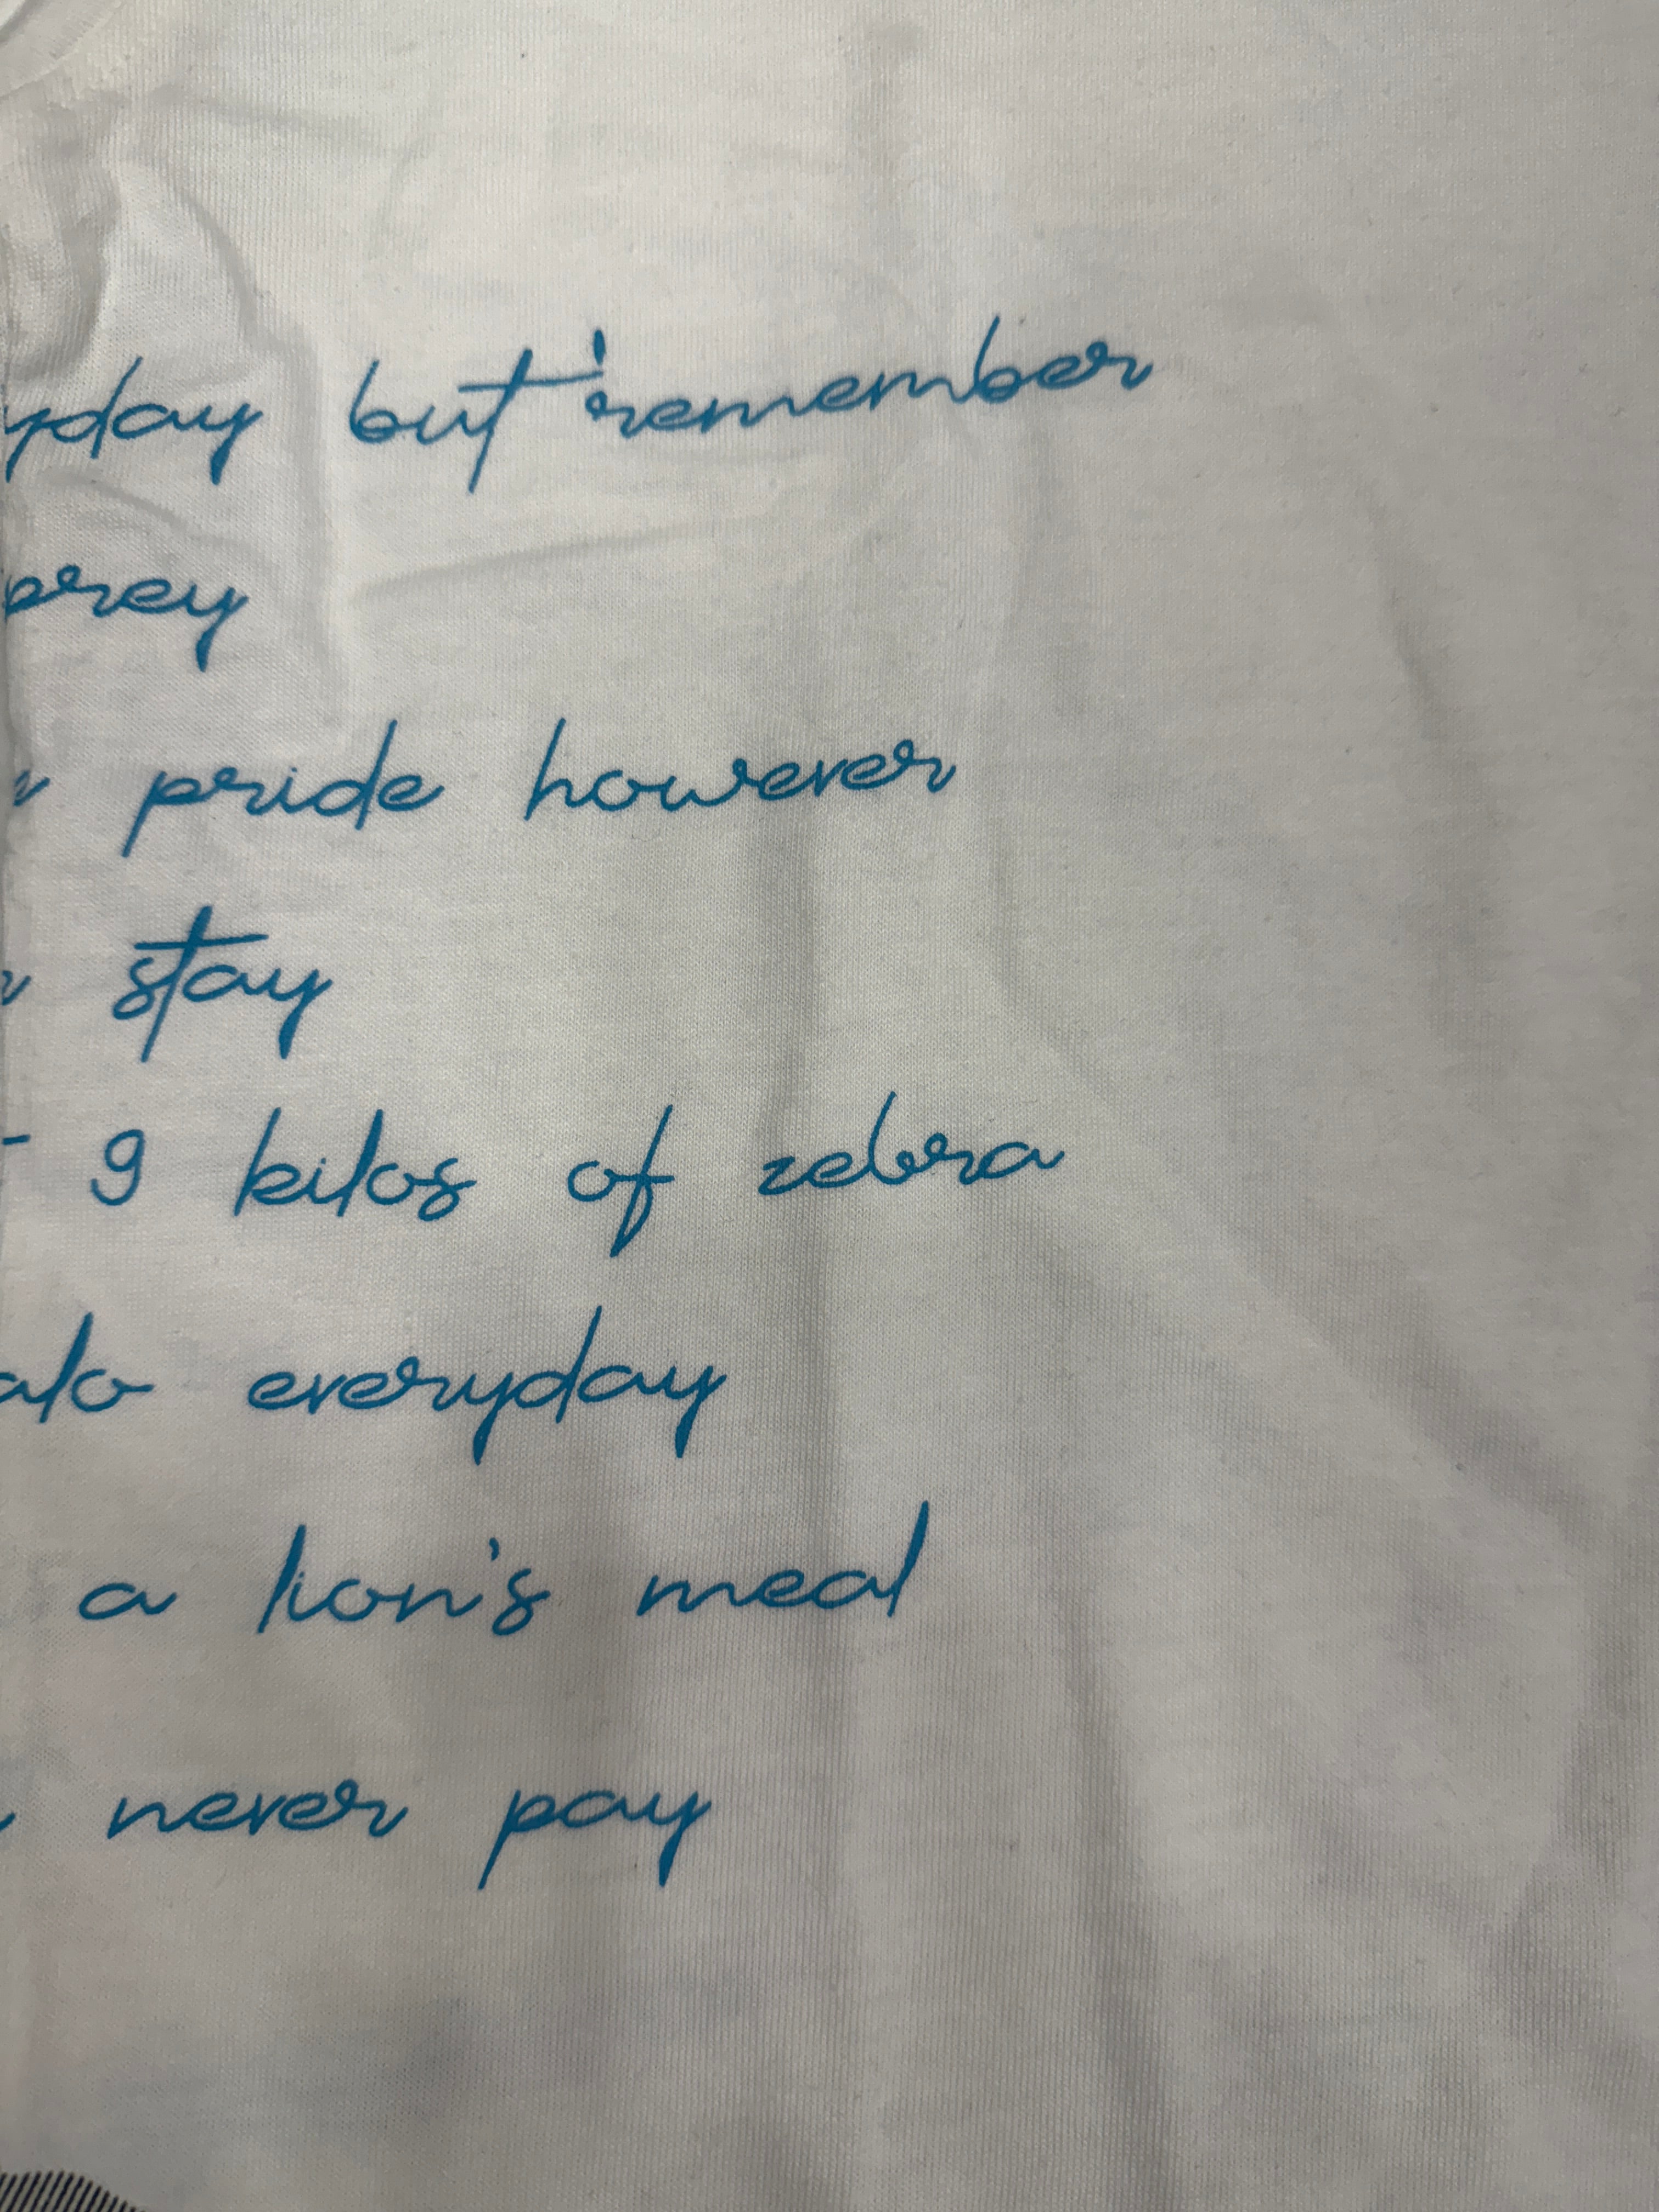 yday but remember
prey
pride however
stay
- 9 kilos of zebra
alo everyday
a lion's meal
never pay